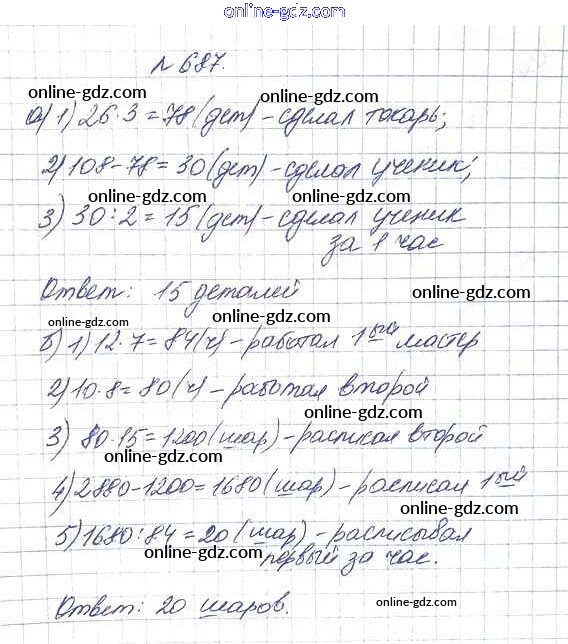 online-gdz.com
№ 687.
online-gdz.com online-gdz.com
а) 1) 26·3=78 (дет) - сделал токарь;
2) 108-78=30 (дет) - сделал ученик;
online-gdz.com online-gdz.com
3) 30:2=15 (дет) - сделал ученик
за 1 час
Ответ: 15 деталей
online-gdz.com
online-gdz.com online-gdz.com
б) 1) 12·7=84 (ч) - работал 1ый мастер
2) 10·8=80 (ч) - работал второй
online-gdz.com
3) 80·15=1200 (шар) - расписал второй
online-gdz.com
4) 2880-1200=1680 (шар) - расписал 1ый
online-gdz.com
5) 1680:84=20 (шар) - расписывал
online-gdz.com
первый за час.
Ответ: 20 шаров.
online-gdz.com